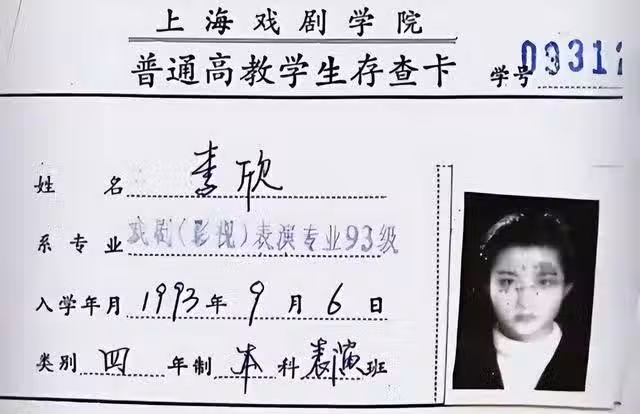 上海戏剧学院
普通高教学生存查卡 学号
姓名 欣
系专业 戏剧(影视)表演专业93级
入学年月 1993年9月6日
类别 四年制本科表演班